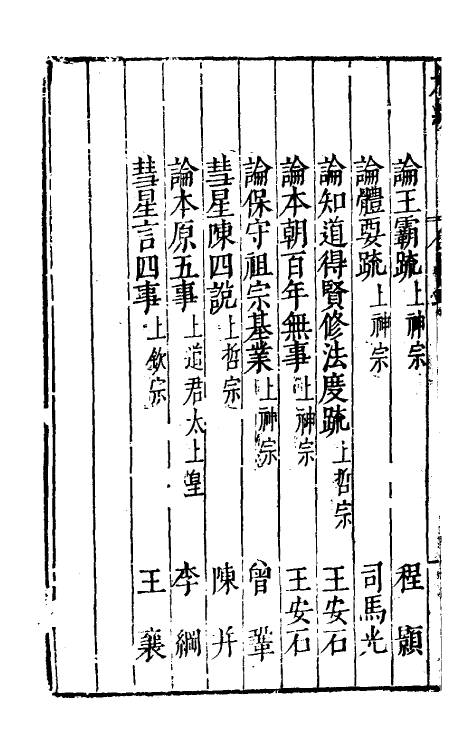 論王霸疏上神宗 程顥
論體要疏上神宗 司馬光
論知道得賢修法度疏上哲宗 王安石
論本朝百年無事上神宗 王安石
論保守祖宗基業上神宗 曾鞏
彗星陳四說上哲宗 陳并
論本原五事上道君太上皇 李綱
彗星言四事上欽宗 王襄